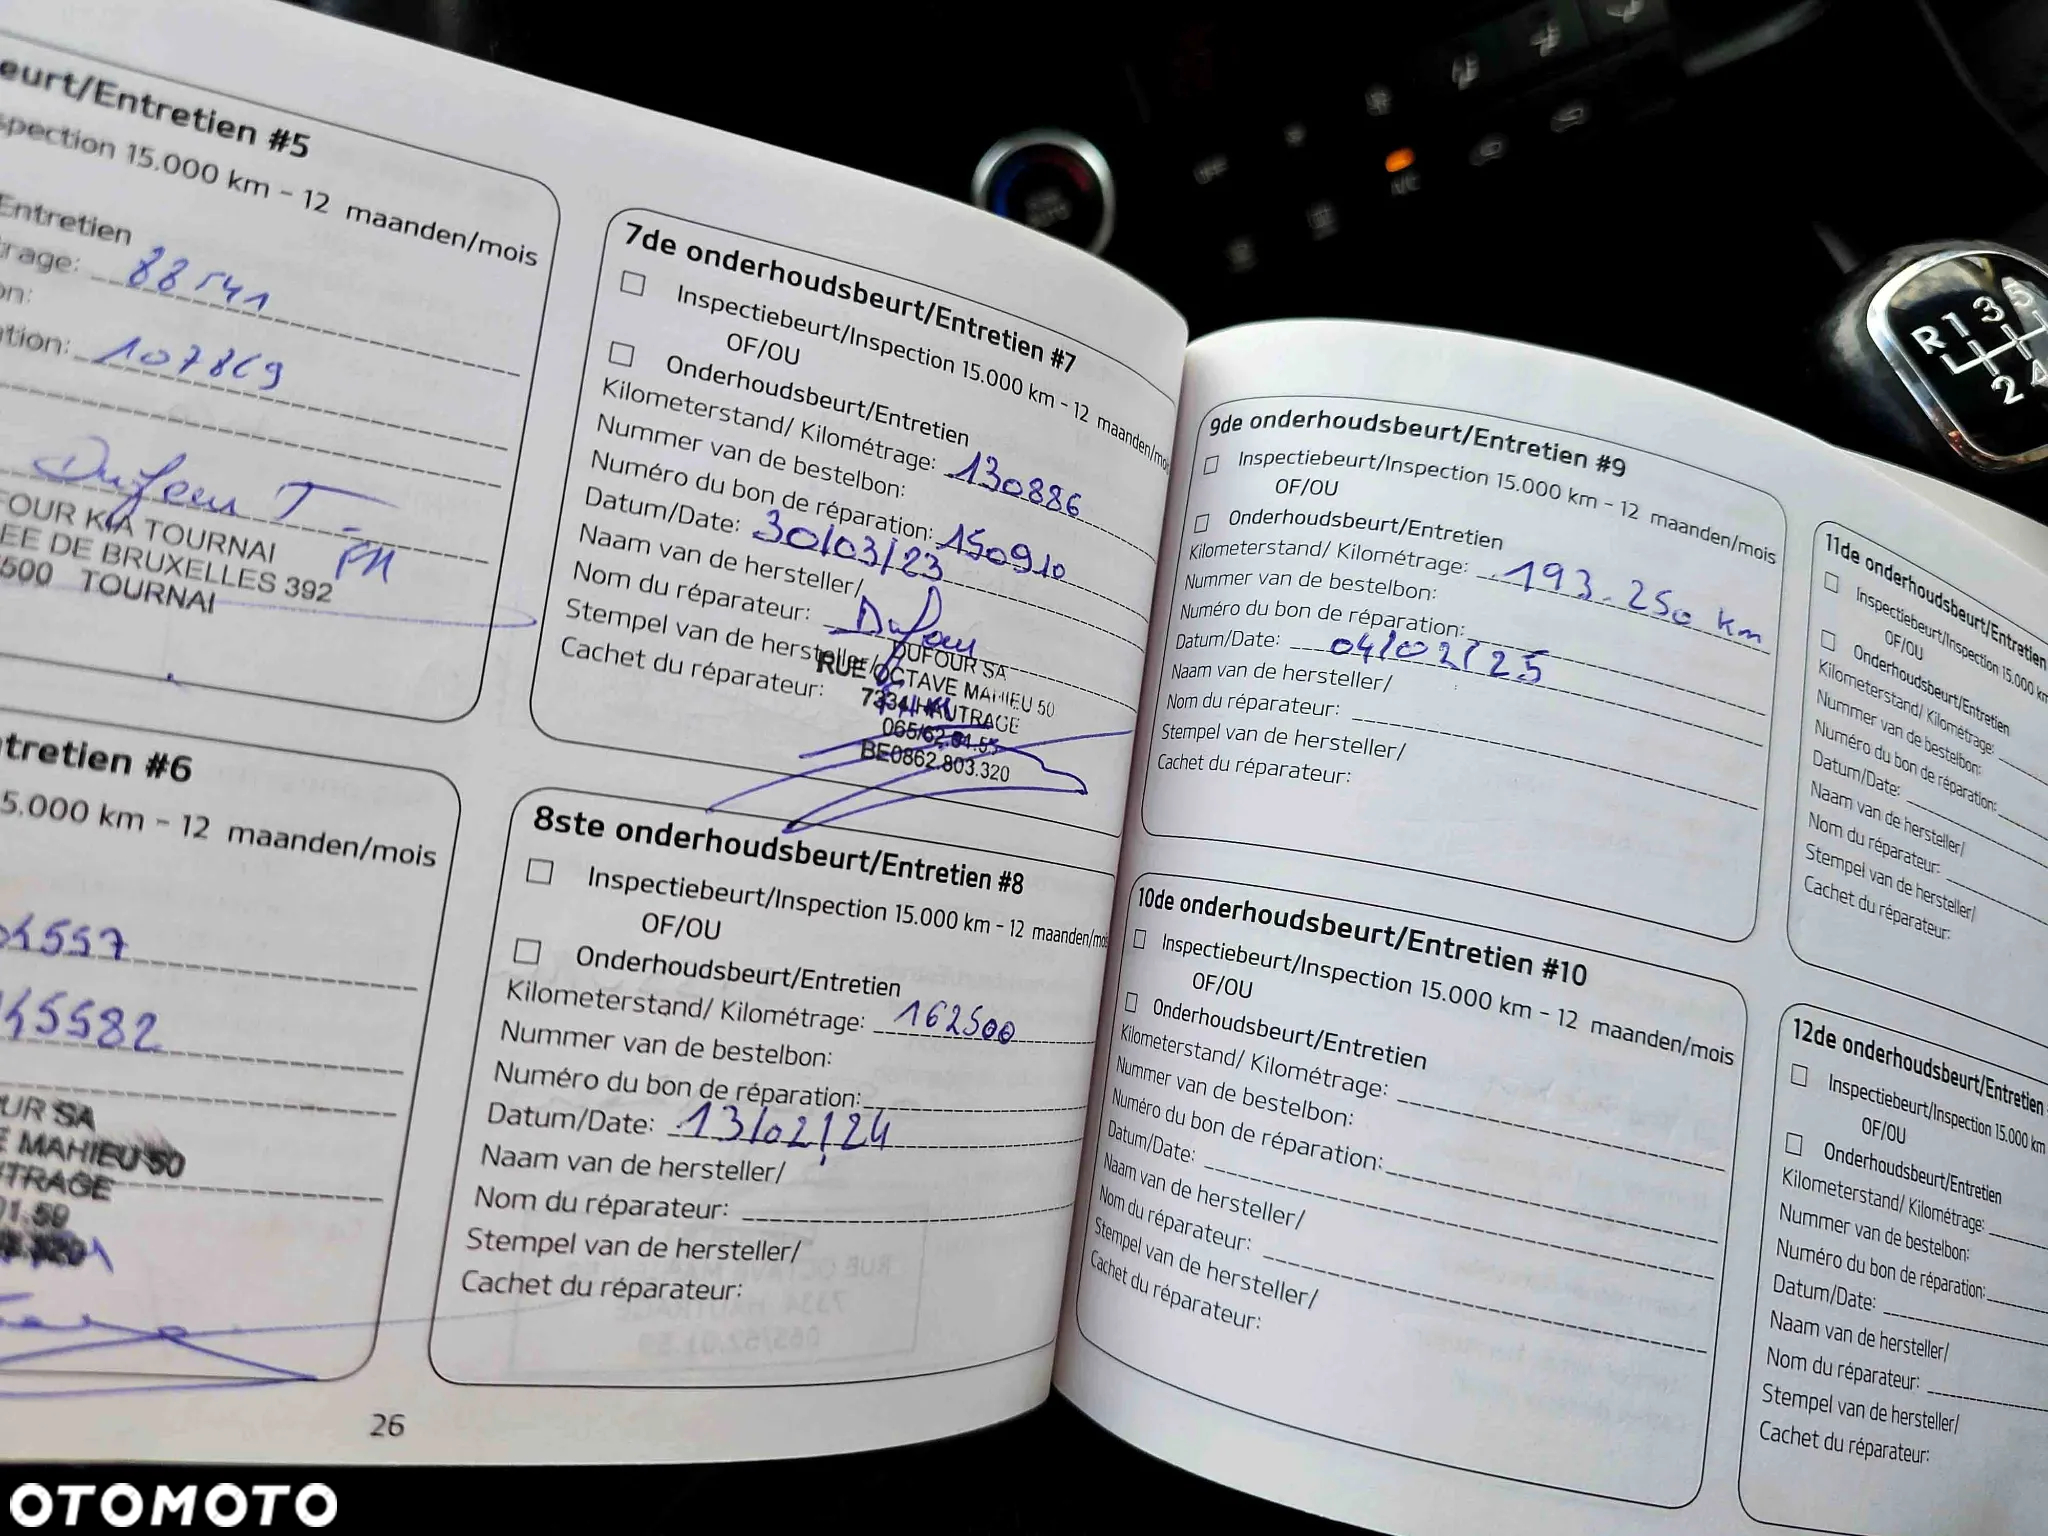 eurt/Entretien #5
spection 15.000 km - 12 maanden/mois
Entretien
trage: 88541
on:
ation: 107869
Dufour T.
FOUR KIA TOURNAI
EE DE BRUXELLES 392
500 TOURNAI
tretien #6
5.000 km - 12 maanden/mois
45582
UR SA
E MAHIEU 50
TRAGE
01.59
26
7de onderhoudsbeurt/Entretien #7
Inspectiebeurt/Inspection 15.000 km - 12 maanden/mois
OF/OU
Onderhoudsbeurt/Entretien
Kilometerstand/ Kilométrage: 130886
Nummer van de bestelbon:
Numéro du bon de réparation: 150910
Datum/Date: 30/03/23
Naam van de hersteller/
Nom du réparateur: Dufour
Stempel van de hersteller/
Cachet du réparateur:
DUFOUR SA
RUE OCTAVE MAHIEU 50
7334 HAUTRAGE
BE0862.803.320
8ste onderhoudsbeurt/Entretien #8
Inspectiebeurt/Inspection 15.000 km - 12 maanden/mois
OF/OU
Onderhoudsbeurt/Entretien
Kilometerstand/ Kilométrage: 162500
Nummer van de bestelbon:
Numéro du bon de réparation:
Datum/Date: 13/02/24
Naam van de hersteller/
Nom du réparateur:
Stempel van de hersteller/
Cachet du réparateur:
9de onderhoudsbeurt/Entretien #9
Inspectiebeurt/Inspection 15.000 km - 12 maanden/mois
OF/OU
Onderhoudsbeurt/Entretien
Kilometerstand/ Kilométrage: 193.250 km
Nummer van de bestelbon:
Numéro du bon de réparation:
Datum/Date: 04/02/25
Naam van de hersteller/
Nom du réparateur:
Stempel van de hersteller/
Cachet du réparateur:
10de onderhoudsbeurt/Entretien #10
Inspectiebeurt/Inspection 15.000 km - 12 maanden/mois
OF/OU
Onderhoudsbeurt/Entretien
Kilometerstand/ Kilométrage:
Nummer van de bestelbon:
Numéro du bon de réparation:
Datum/Date:
Naam van de hersteller/
Nom du réparateur:
Stempel van de hersteller/
Cachet du réparateur:
11de onderhoudsbeurt/Entretien
Inspectiebeurt/Inspection 15.000 km
OF/OU
Onderhoudsbeurt/Entretien
Kilometerstand/ Kilométrage:
Nummer van de bestelbon:
Numéro du bon de réparation:
Datum/Date:
Naam van de hersteller/
Nom du réparateur:
Stempel van de hersteller/
Cachet du réparateur:
12de onderhoudsbeurt/Entretien
Inspectiebeurt/Inspection 15.000 km
OF/OU
Onderhoudsbeurt/Entretien
Kilometerstand/ Kilométrage:
Nummer van de bestelbon:
Numéro du bon de réparation:
Datum/Date:
Naam van de hersteller/
Nom du réparateur:
Stempel van de hersteller/
Cachet du réparateur:
OFF
A/C
R 1 3 5
2 4
OTOMOTO